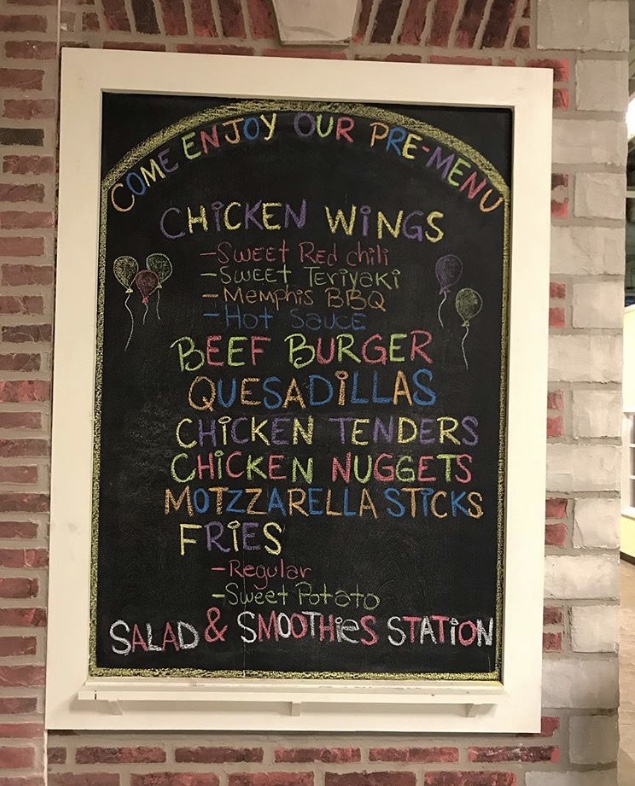 COME ENJOY OUR PRE-MENU
CHiCKEN WiNGS
-Sweet Red chili
-Sweet Teriyaki
-Memphis BBQ
-Hot Sauce
BEEF BURGER
QUESADiLLAS
CHiCKEN TENDERS
CHiCKEN NUGGETS
MOTZZARELLA STiCKS
FRiES
-Regular
-Sweet Potato
SALAD & SMOOTHieS STATiON